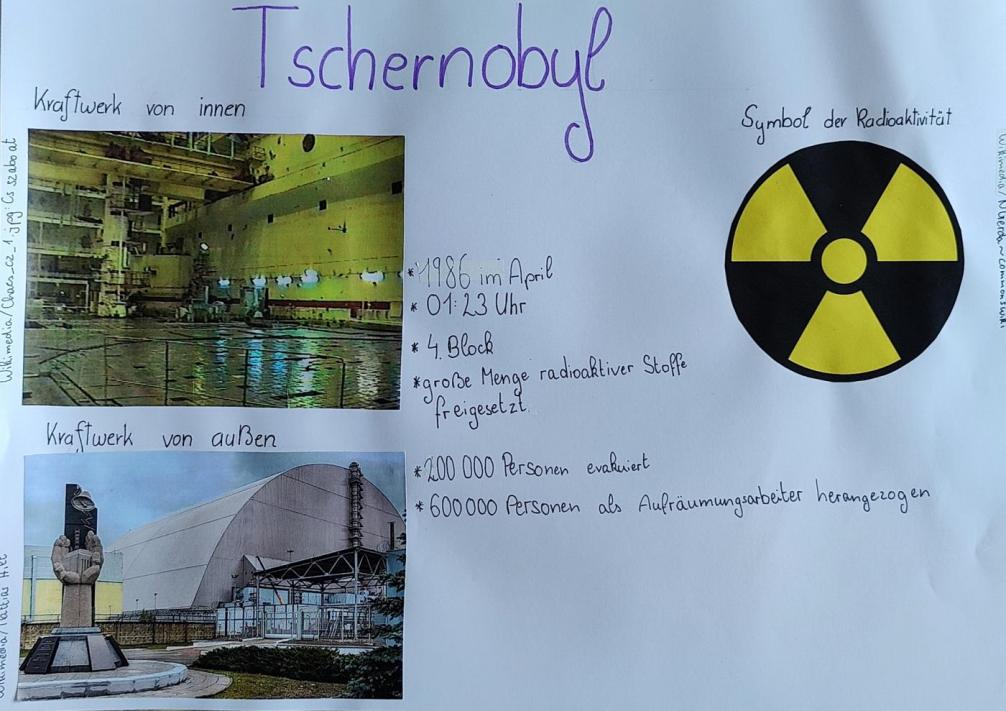 Tschernobyl
Kraftwerk von innen
Symbol der Radioaktivität
* 1986 im April
* 01:23 Uhr
* 4. Block
* große Menge radioaktiver Stoffe
freigesetzt
Kraftwerk von außen
* 200 000 Personen evakuiert
* 600 000 Personen als Aufräumungsarbeiter herangezogen
Wikimedia/Chaes_cz_1.jpg: Cs szabo at
Wikimedia/
Wikimedia/